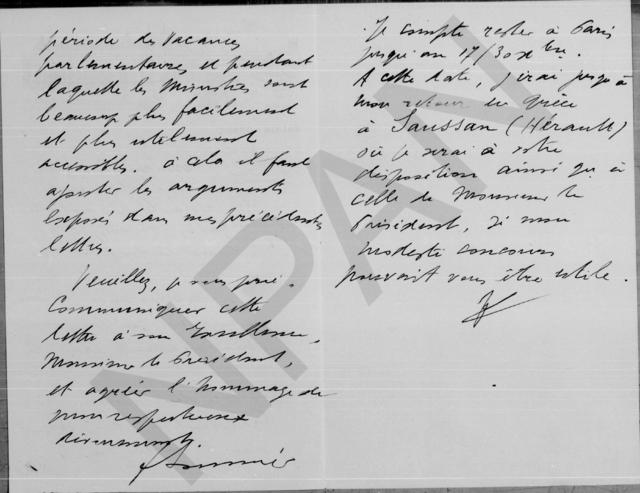 période des vacances
parlementaires et pendant
laquelle les Ministres sont
beaucoup plus facilement
et plus utilement
accessibles. à cela il faut
ajouter les arguments
exposés dans mes précédentes
lettres.
Veuillez, je vous prie
Communiquer cette
lettre à son Excellence,
Monsieur le Président,
et agréer l'hommage de
mon respectueux
dévouement.
Je compte rester à Paris
jusqu'au 17/30
A cette date, j'irai jusqu'à
mon retour en grèce
à Saussan (Hérault)
où je serai à votre
disposition ainsi qu'à
celle de Monsieur le
Président, si mon
modeste concours
pouvait vous être utile.
NPAN